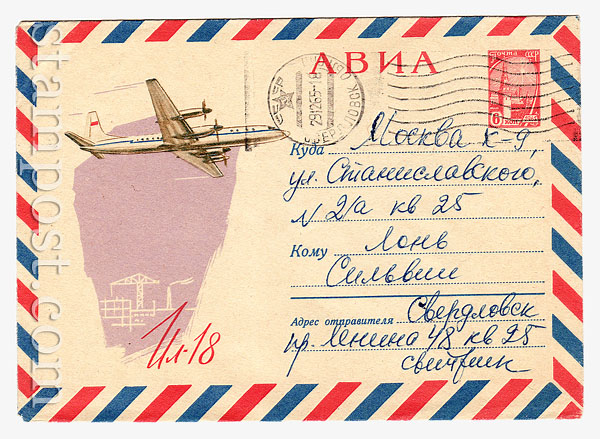 stampost.com
АВИА
ПОЧТА СССР
6 КОП
291265-18
СВЕРДЛОВСК
Куда Москва К-9,
ул. Станиславского,
N 2/а кв 25
Кому Лонь
Сильвии
Адрес отправителя Свердловск
пр. Ленина 48 кв 25
Ил-18